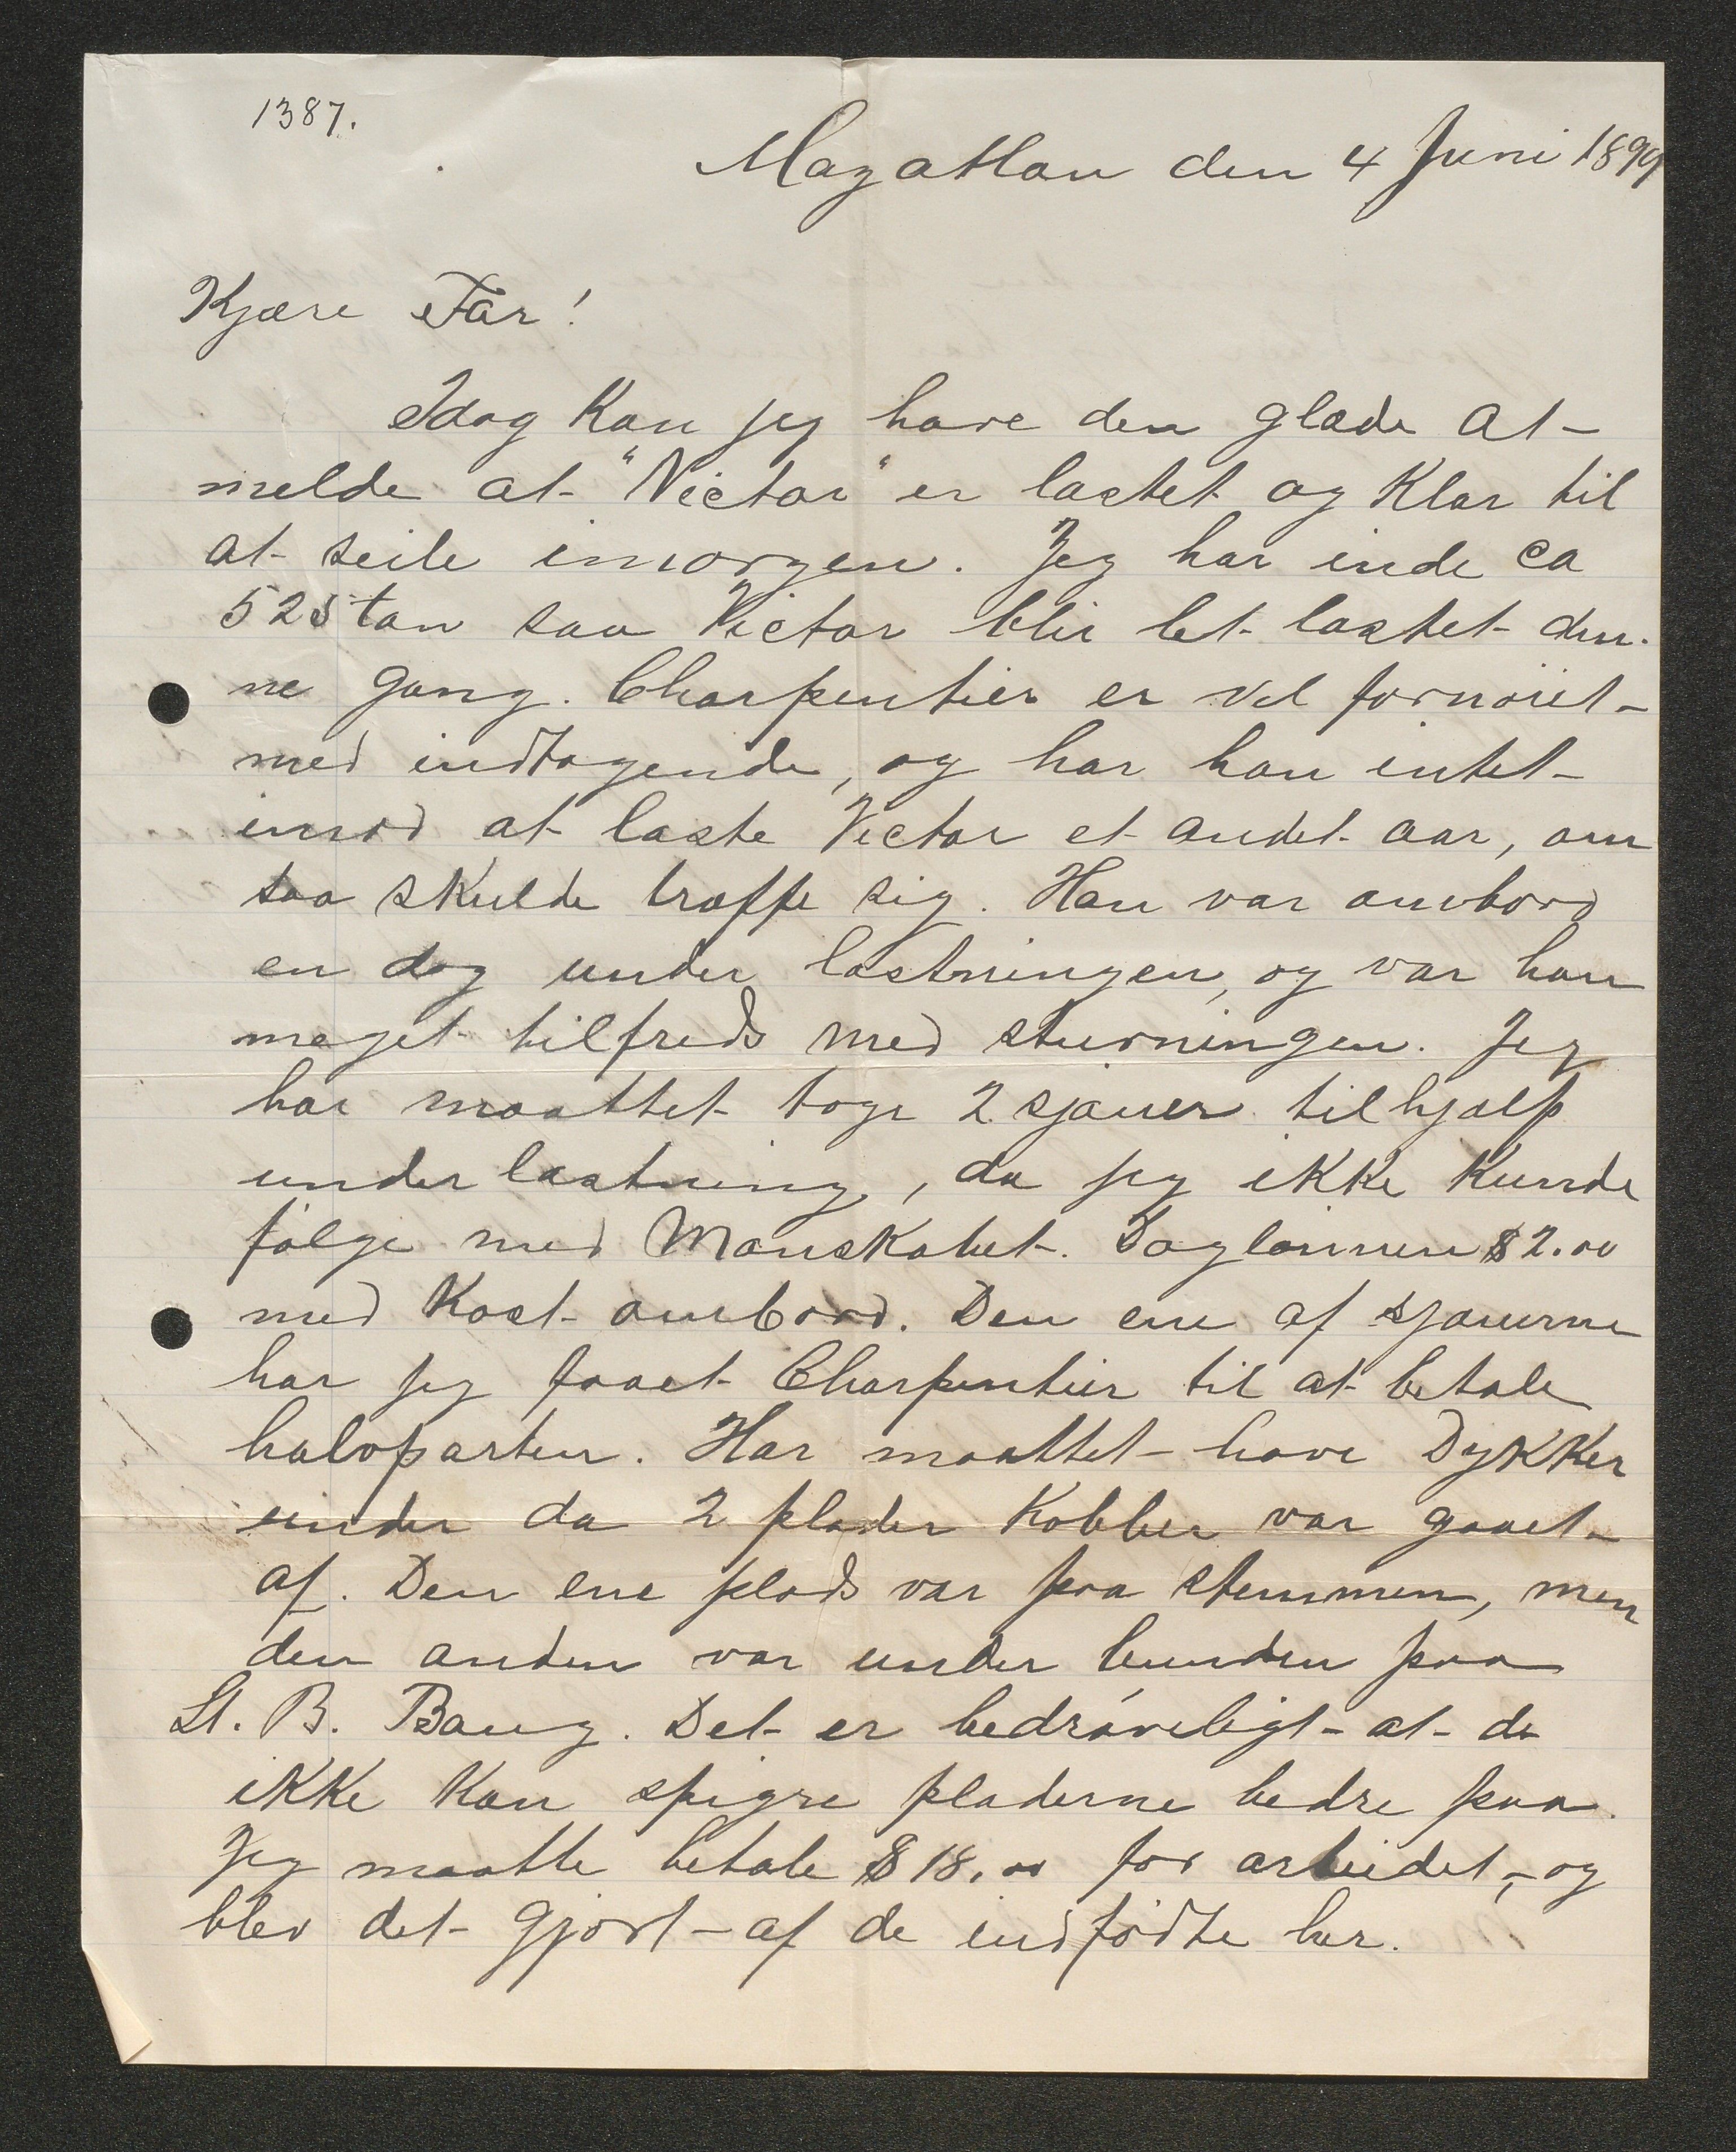 1387.
Mazatlan den 4 Juni 1899
Kjære Far!
Idag kan jeg have den glæde at
melde at "Victor" er lastet og klar til
at seile imorgen. Jeg har inde ca
525 ton saa Victor blir let lastet den-
ne gang. Charpentier er vel fornøiet
med indtagende, og har han intet
imod at laste Victor et andet aar, om
saa skulde træffe sig. Han var ombord
en dag under lastningen, og var han
meget tilfreds med stuvningen. Jeg
har maattet tage 2 sjauer til hjælp
under lastning, da jeg ikke kunde
følge med Manskabet. Daglønnen $2.00
med Kost ombord. Den ene af sjauerne
har jeg faaet Charpentier til at betale
halvparten. Har maattet have Dykker
under da 2 plader Kobber var gaaet
af. Den ene plads var paa stemmen, men
den anden var under bunden paa
St. B. Boug. Det er bedrøveligt at de
ikke kan spigre pladerne bedre paa.
Jeg maatte betale $18.00 for arbeidet, og
blev det gjort af de indfødte her.